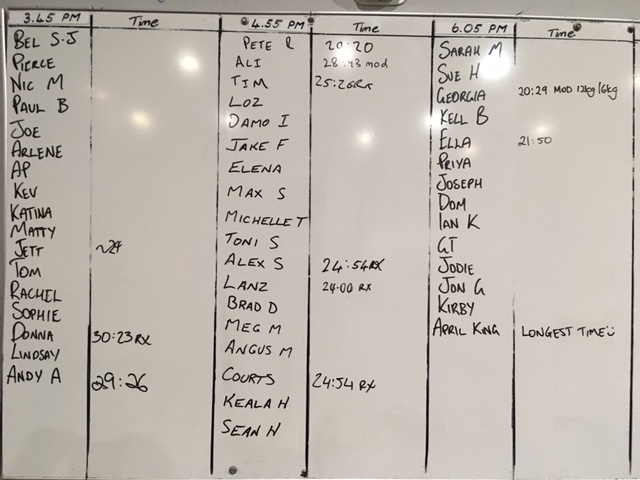 3.45 PM Time
BEL S.J
PIERCE
NIC M
PAUL B
JOE
ARLENE
AP
KEV
KATINA
MATTY
JETT ~29
TOM
RACHEL
SOPHIE
DONNA 30:23 RX
LINDSAY
ANDY A 29:26
4.55 PM Time
PETE R 20:20
ALI 28:43 mod
TIM 25:26 RX
LOZ
DAMO I
JAKE F
ELENA
MAX S
MICHELLE T
TONI S
ALEX S 24:54 RX
LANZ 24:00 RX
BRAD D
MEG M
ANGUS M
COURTS 24:54 RX
KEALA H
SEAN H
6.05 PM Time
SARAH M
SUE H
GEORGIA 20:29 MOD 12kg/6kg
KELL B
ELLA 21:50
PRIYA
JOSEPH
DOM
IAN K
GT
JODIE
JON G
KIRBY
APRIL KING LONGEST TIME